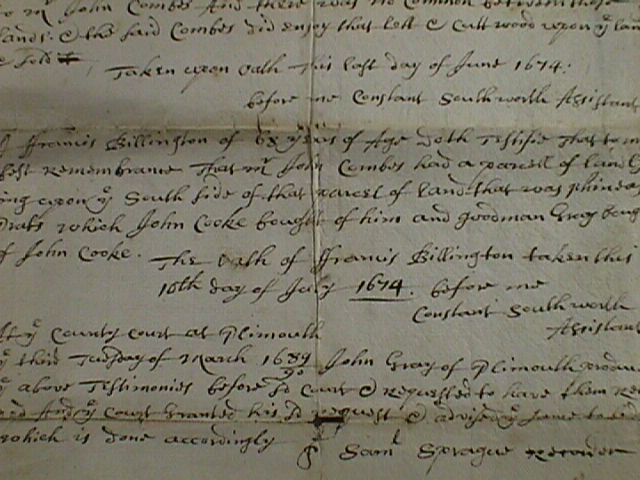 to mr John Combes And there was no Common between those
lands: & the said Combes did enjoy that lott & Cutt wood upon ye lan
e sold
Taken upon oath This last day of June 1674:
before me Constant Southworth Assistant
ffrancis Billington of 68 years of Age doth Testifie That to m
best Remembrance That mr John Combes had a parcell of land
ing upon ye South side of that parcel of land that was phineas
Pratts which John Cooke bought of him and goodman Gray boug
f John Cooke.
The Oath of ffrancis Billington taken this
10th day of July 1674: before me
Constant Southworth
Assistant
At ye County Court at Plimouth
ye third Tuesday of March 1689/90 John Gray of Plimouth produc
ye above Testimonies before sd Court & Requested to have them Re
And ye Court Granted his sd request & advised ye same to
which is done accordingly
Saml Sprague Recorder